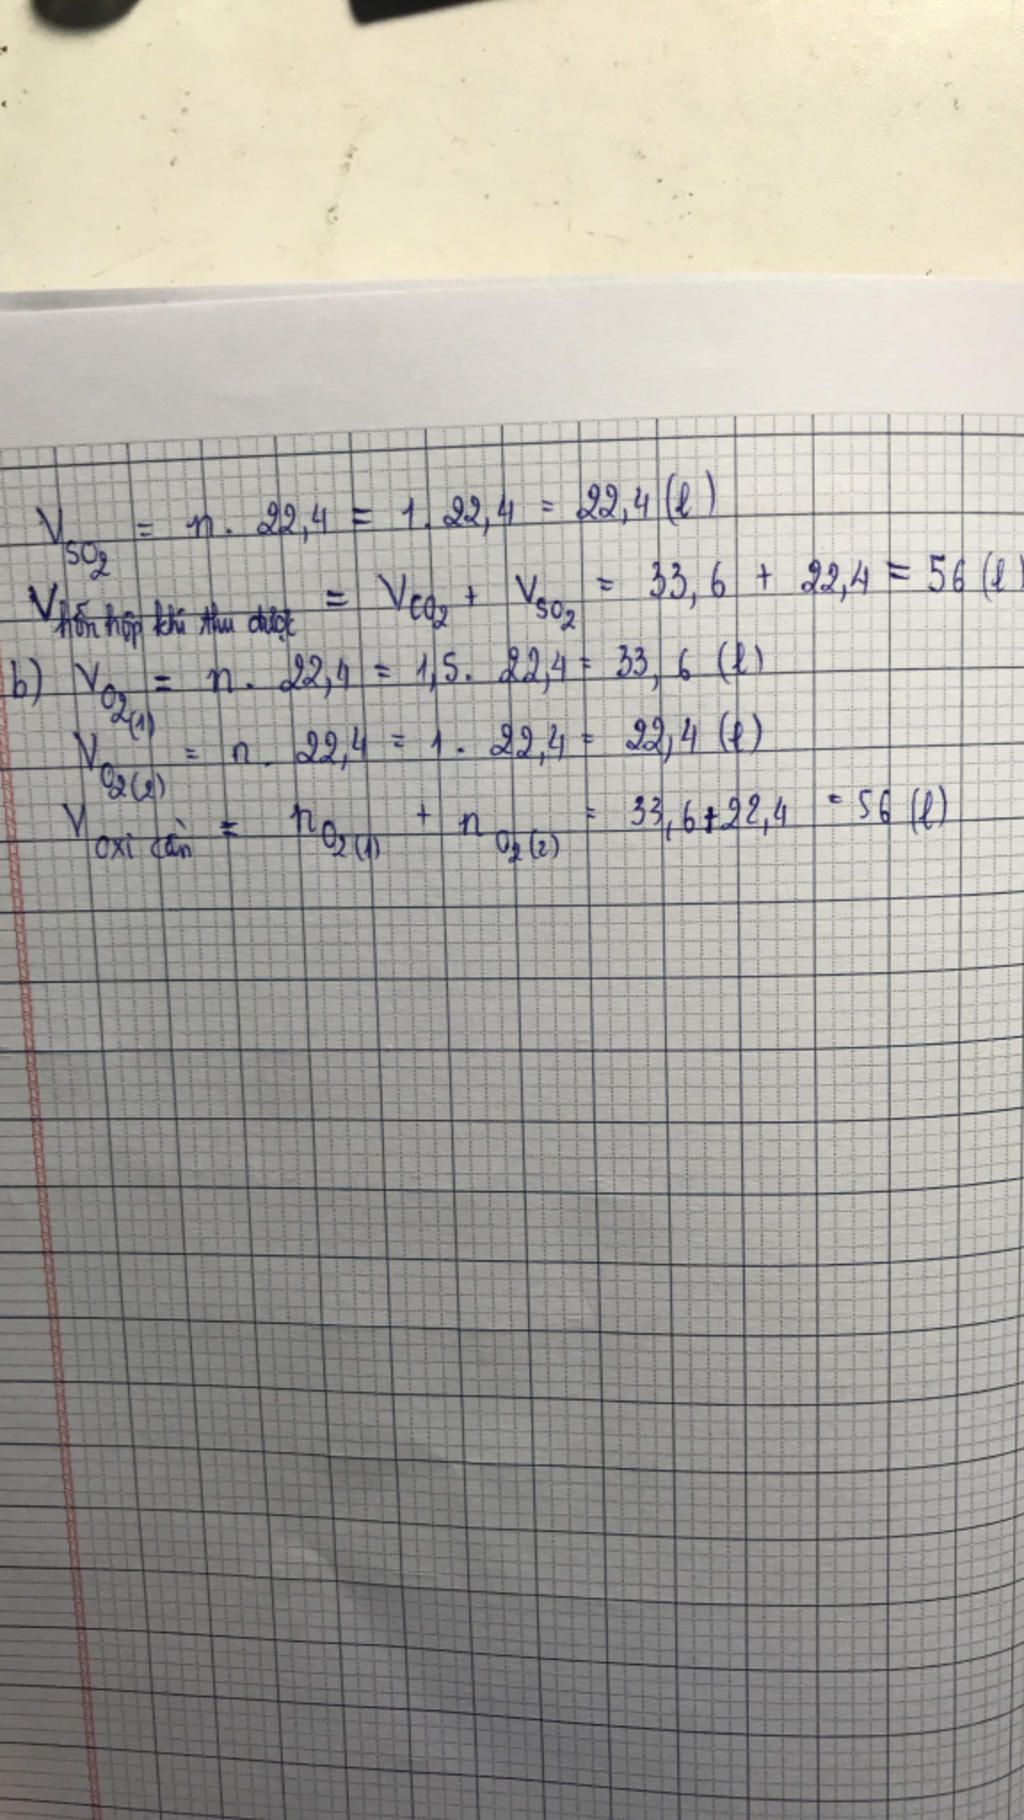 V_SO₂ = n . 22,4 = 1 . 22,4 = 22,4 (l)
V_hỗn hợp khí thu được = V_CO₂ + V_SO₂ = 33,6 + 22,4 = 56 (l)
b) V_O₂(1) = n . 22,4 = 1,5 . 22,4 = 33,6 (l)
V_O₂(2) = n . 22,4 = 1 . 22,4 = 22,4 (l)
V_oxi cần = n_O₂(1) + n_O₂(2) = 33,6 + 22,4 = 56 (l)